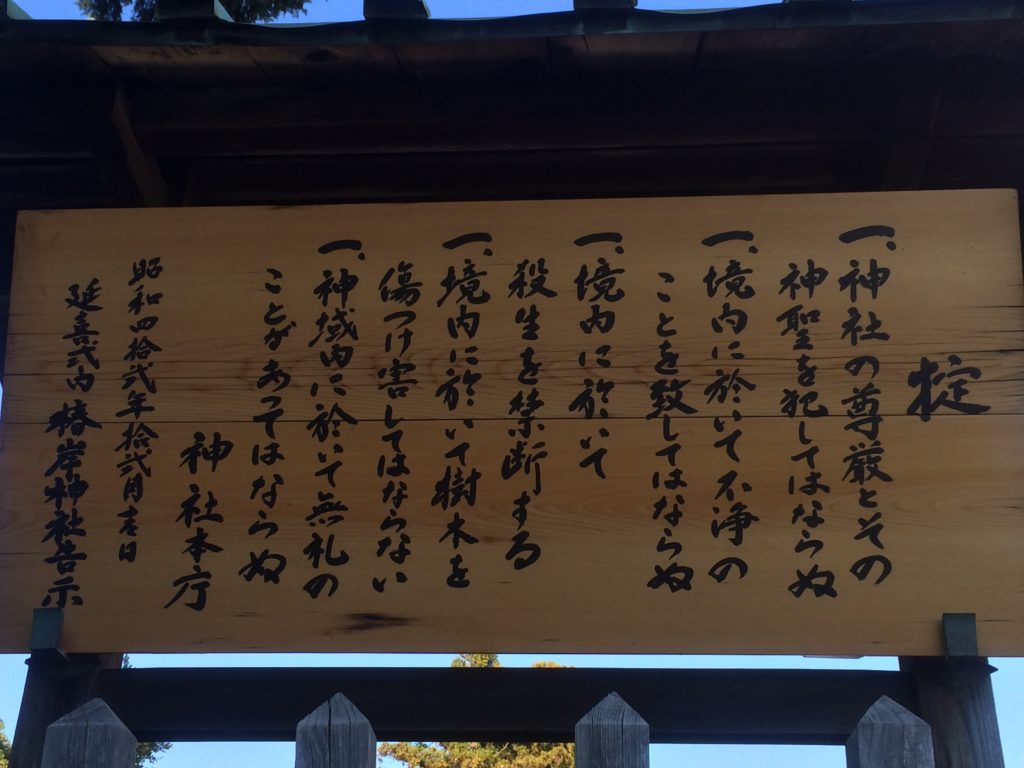 掟
一、神社の尊厳とその
神聖を犯してはならぬ
一、境内に於いて不浄の
ことを致してはならぬ
一、境内に於いて
殺生を禁断する
一、境内に於いて樹木を
傷つけ害してはならない
一、神域内に於いて無礼の
ことがあってはならぬ
神社本庁
昭和四拾弐年拾弐月吉日
延喜式内 椿岸神社告示